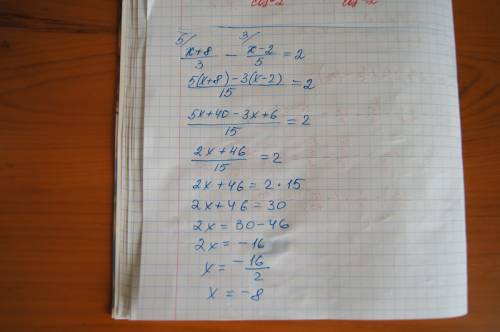 5/ 3/
(x+8)/3 - (x-2)/5 = 2
(5(x+8)-3(x-2))/15 = 2
(5x+40-3x+6)/15 = 2
(2x+46)/15 = 2
2x+46 = 2·15
2x+46 = 30
2x = 30-46
2x = -16
x = -16/2
x = -8